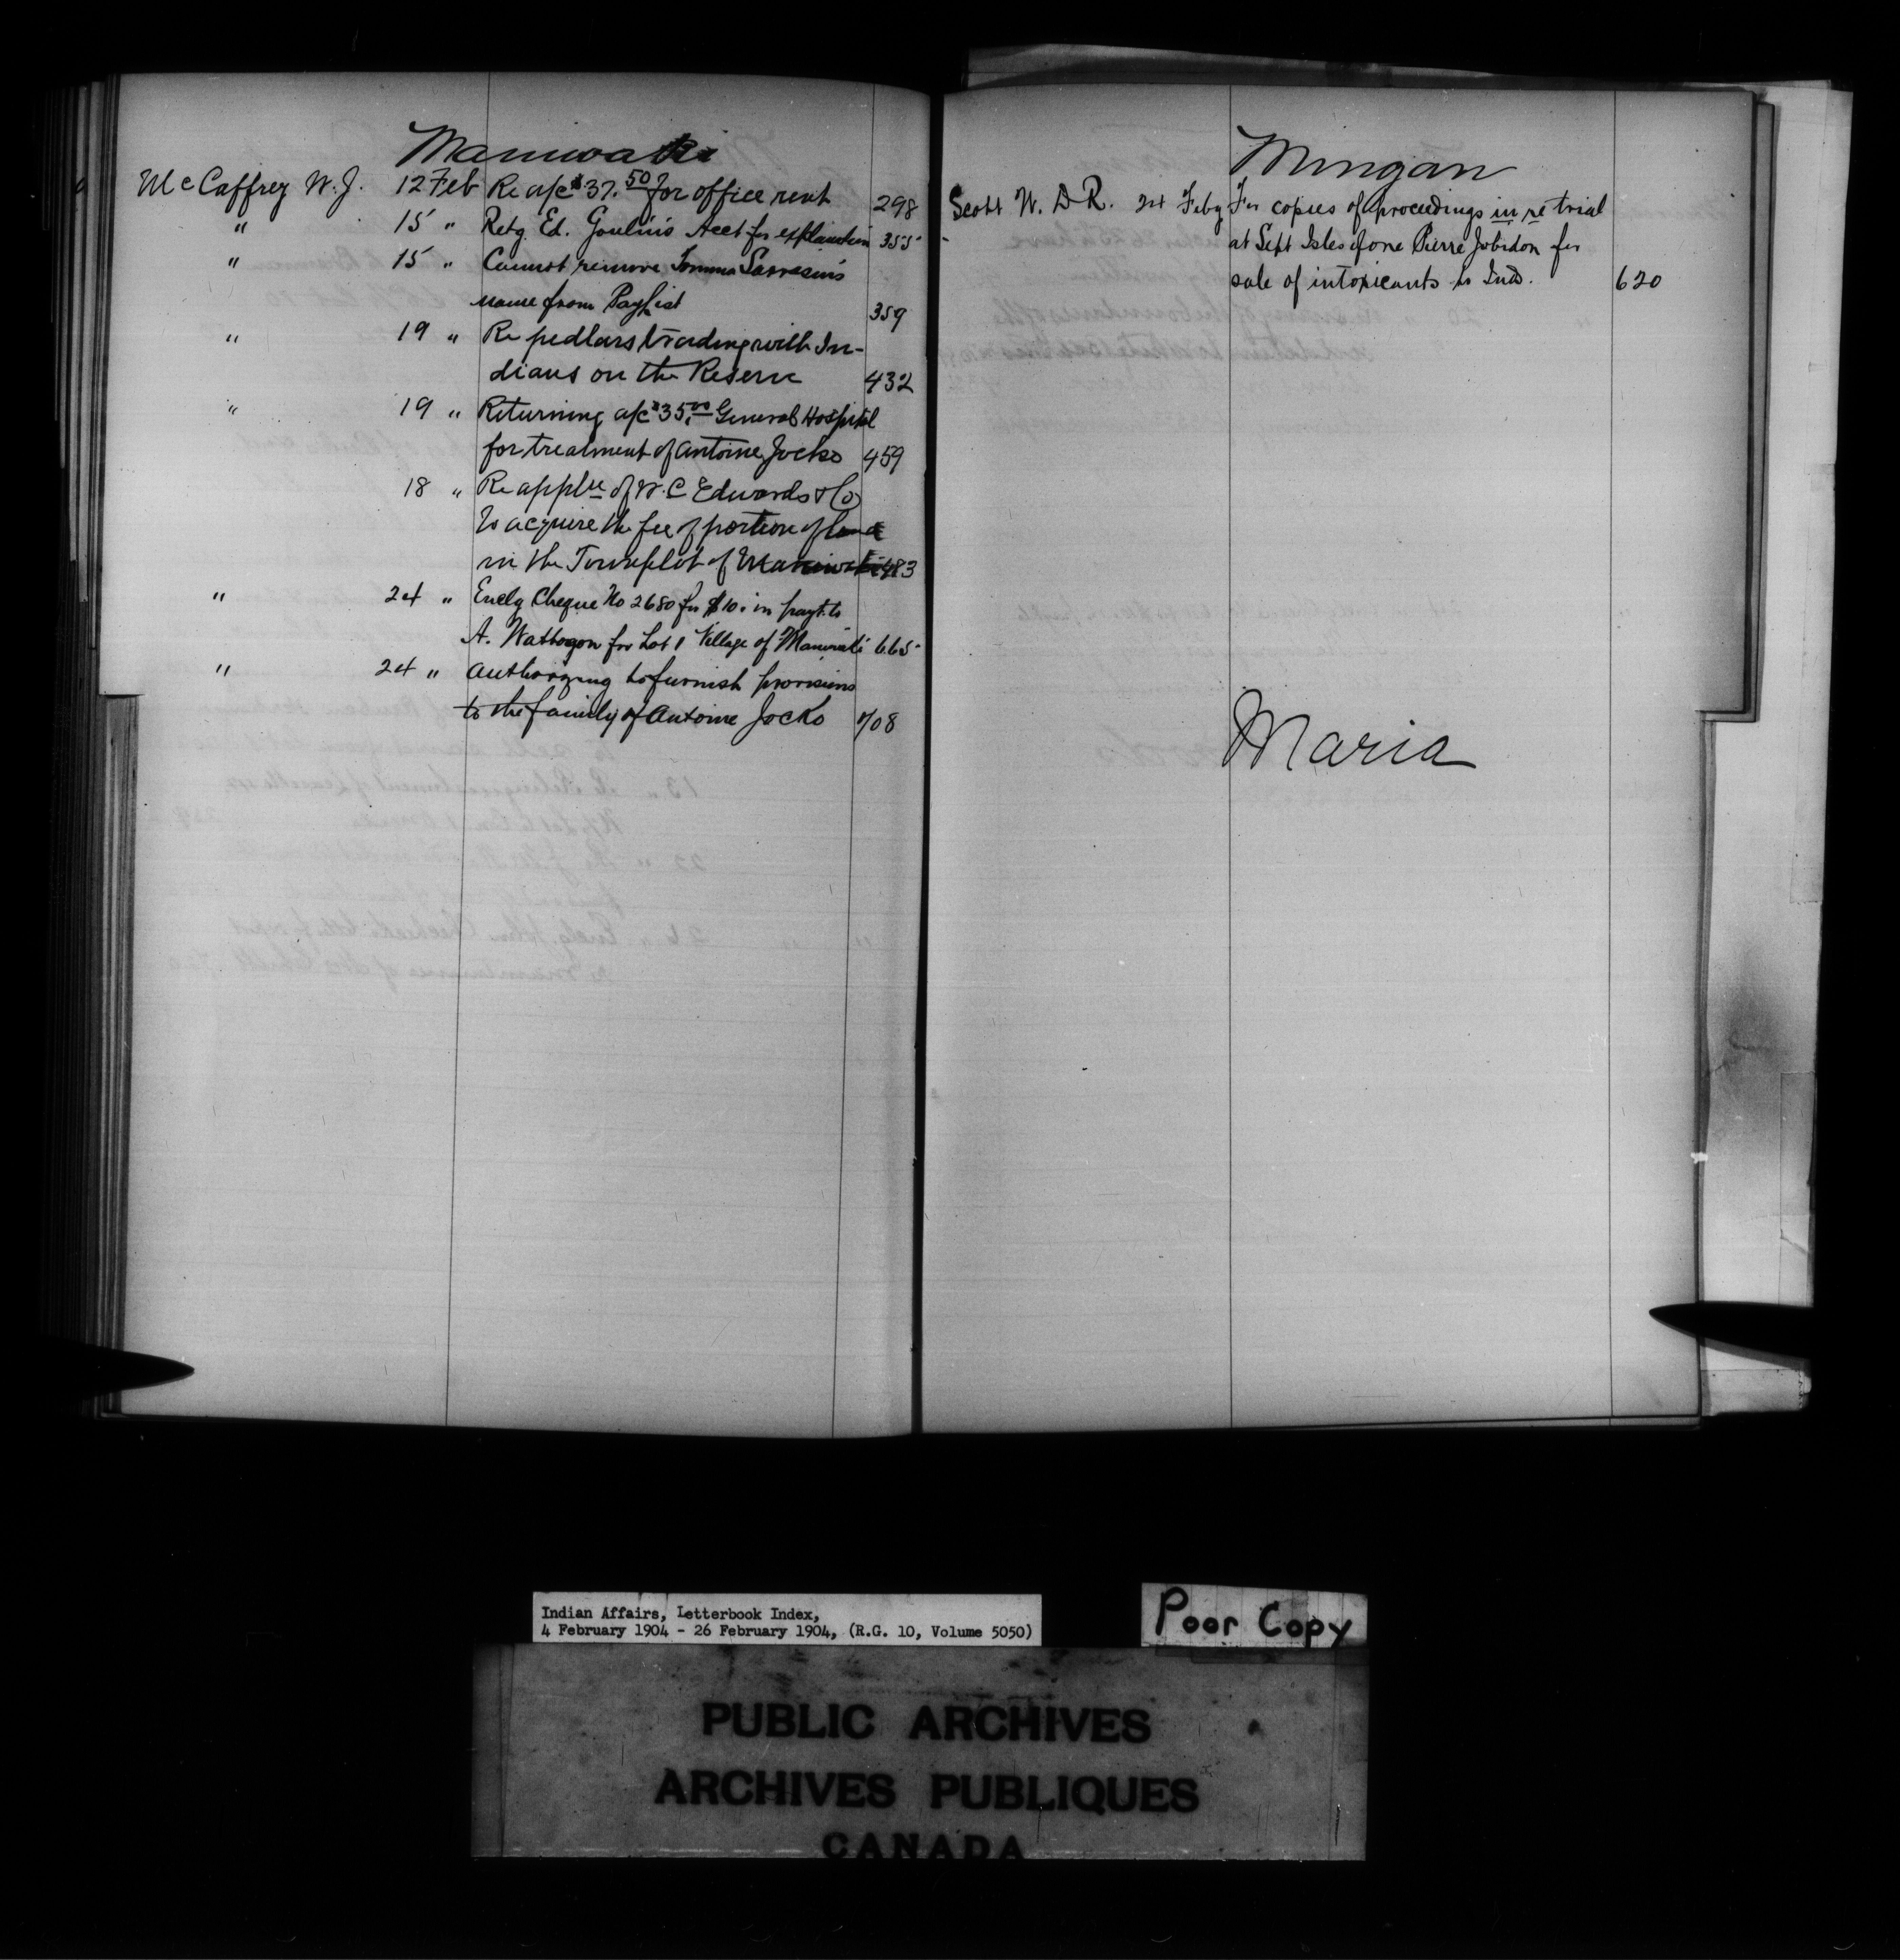 Maniwaki
McCaffrey W. J. 12 Feb Re a/c $37.50 for office rent 298
" 15 " Retg Ed. Goulin's Acct for explanation 355
" 15 " Cannot remove Sarrasin's
name from Paylist 359
" 19 " Re pedlars trading with In-
dians on the Reserve 432
" 19 " Returning a/c $35.00 General Hospital
for treatment of Antoine Jocko 459
18 " Re appln of W. C. Edwards & Co
to acquire the fee of portion of land
in the Townplot of Maniwaki 483
" 24 " Enclg Cheque No 2680 for $10. in payt to
A. Wattagon for Lot 1 Village of Maniwaki 665
" 24 " Authorizing to furnish provisions
to the family of Antoine Jocko 708
Mingan
Scott W. D. R. 24 Feby For copies of proceedings in re trial
at Sept Isles of one Pierre Jobidon for
sale of intoxicants to Inds. 620
Maria
Indian Affairs, Letterbook Index,
4 February 1904 - 26 February 1904, (R.G. 10, Volume 5050)
Poor Copy
PUBLIC ARCHIVES
ARCHIVES PUBLIQUES
CANADA